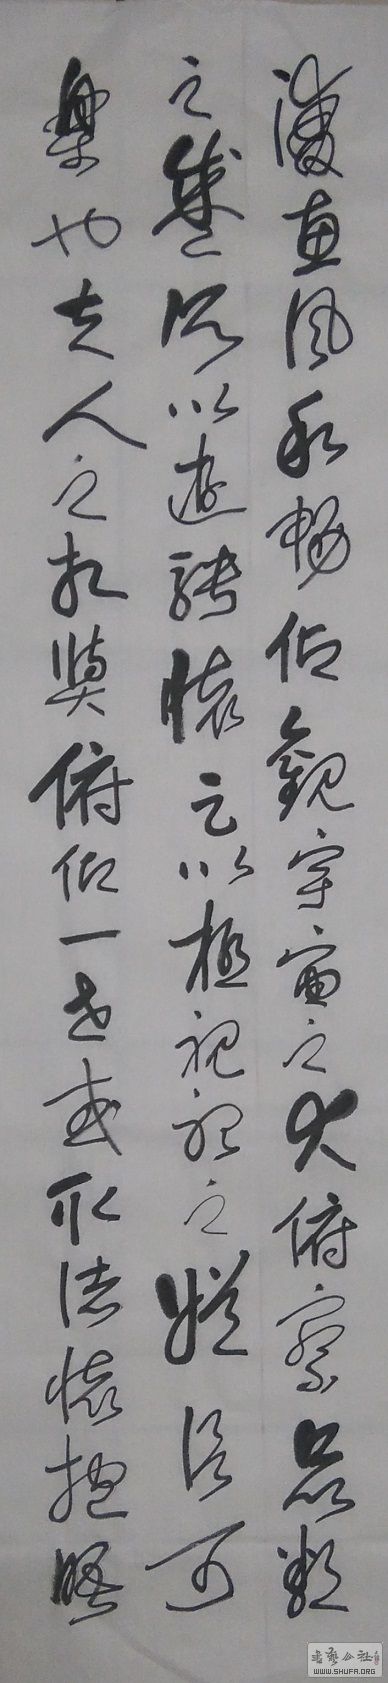 清惠風和暢仰觀宇宙之大俯察品類
之盛所以遊騁懷足以極視聽之娛信可
樂也夫人之相與俯仰一世或取諸懷抱晤
書藝公社
WWW.SHUFA.ORG